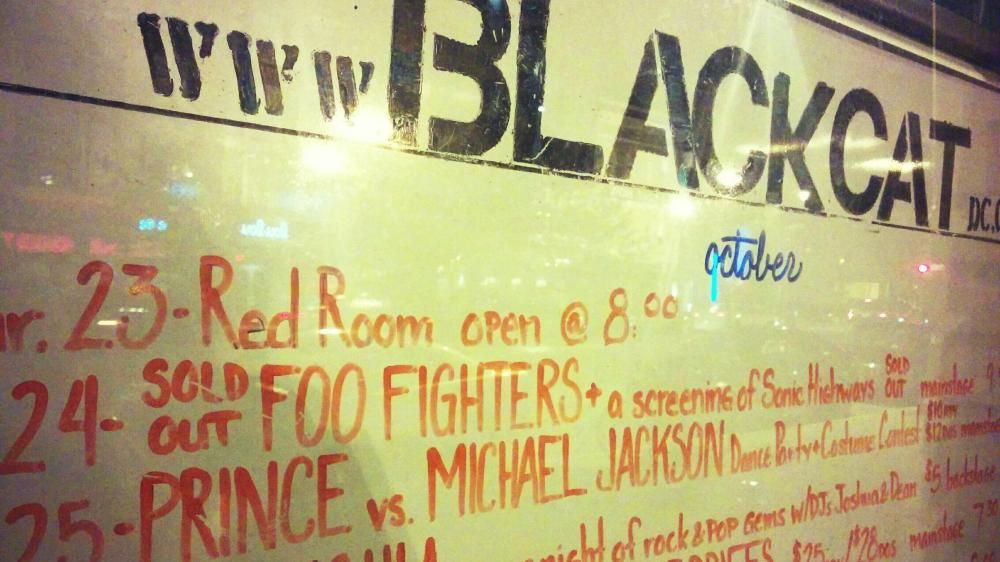 www BLACKCAT DC.
october
23- Red Room open @ 8:00
24- SOLD OUT FOO FIGHTERS + a screening of Sonic Highways SOLD OUT mainstage
25- PRINCE vs. MICHAEL JACKSON Dance Party + Costume Contest mainstage
night of rock & POP Gems w/DJs Joshua & Dean $5 backstage
$25 /$28 DOS mainstage 7:30